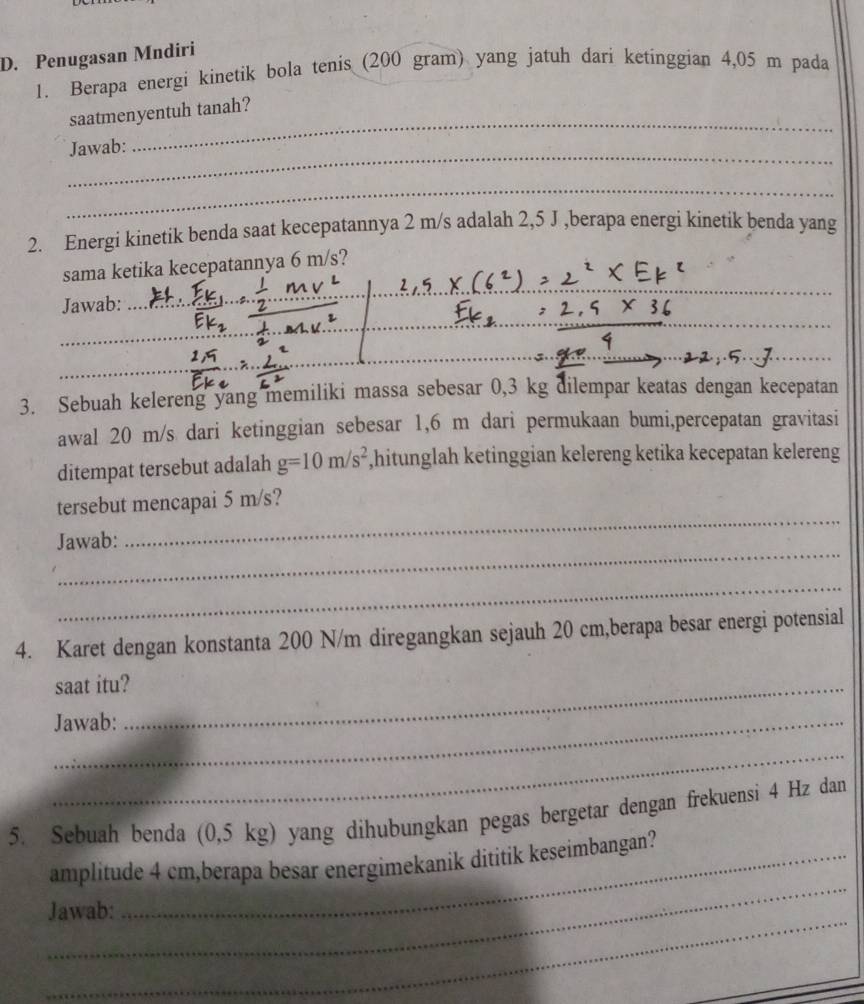 D. Penugasan Mndiri
1. Berapa energi kinetik bola tenis (200 gram) yang jatuh dari ketinggian 4,05 m pada
saatmenyentuh tanah?
Jawab:
2. Energi kinetik benda saat kecepatannya 2 m/s adalah 2,5 J ,berapa energi kinetik benda yang
sama ketika kecepatannya 6 m/s?
Jawab: Ek1/Ek2 = ½ mv²/½ mv² | 2,5 × (6²) = 2² × Ek²
2,5/Ek2 = 2²/6² | Ek2 = 2,5 × 36/4
= 90 → 22,5 J
3. Sebuah kelereng yang memiliki massa sebesar 0,3 kg dilempar keatas dengan kecepatan
awal 20 m/s dari ketinggian sebesar 1,6 m dari permukaan bumi,percepatan gravitasi
ditempat tersebut adalah g=10 m/s²,hitunglah ketinggian kelereng ketika kecepatan kelereng
tersebut mencapai 5 m/s?
Jawab:
4. Karet dengan konstanta 200 N/m diregangkan sejauh 20 cm,berapa besar energi potensial
saat itu?
Jawab:
5. Sebuah benda (0,5 kg) yang dihubungkan pegas bergetar dengan frekuensi 4 Hz dan
amplitude 4 cm,berapa besar energimekanik dititik keseimbangan?
Jawab: